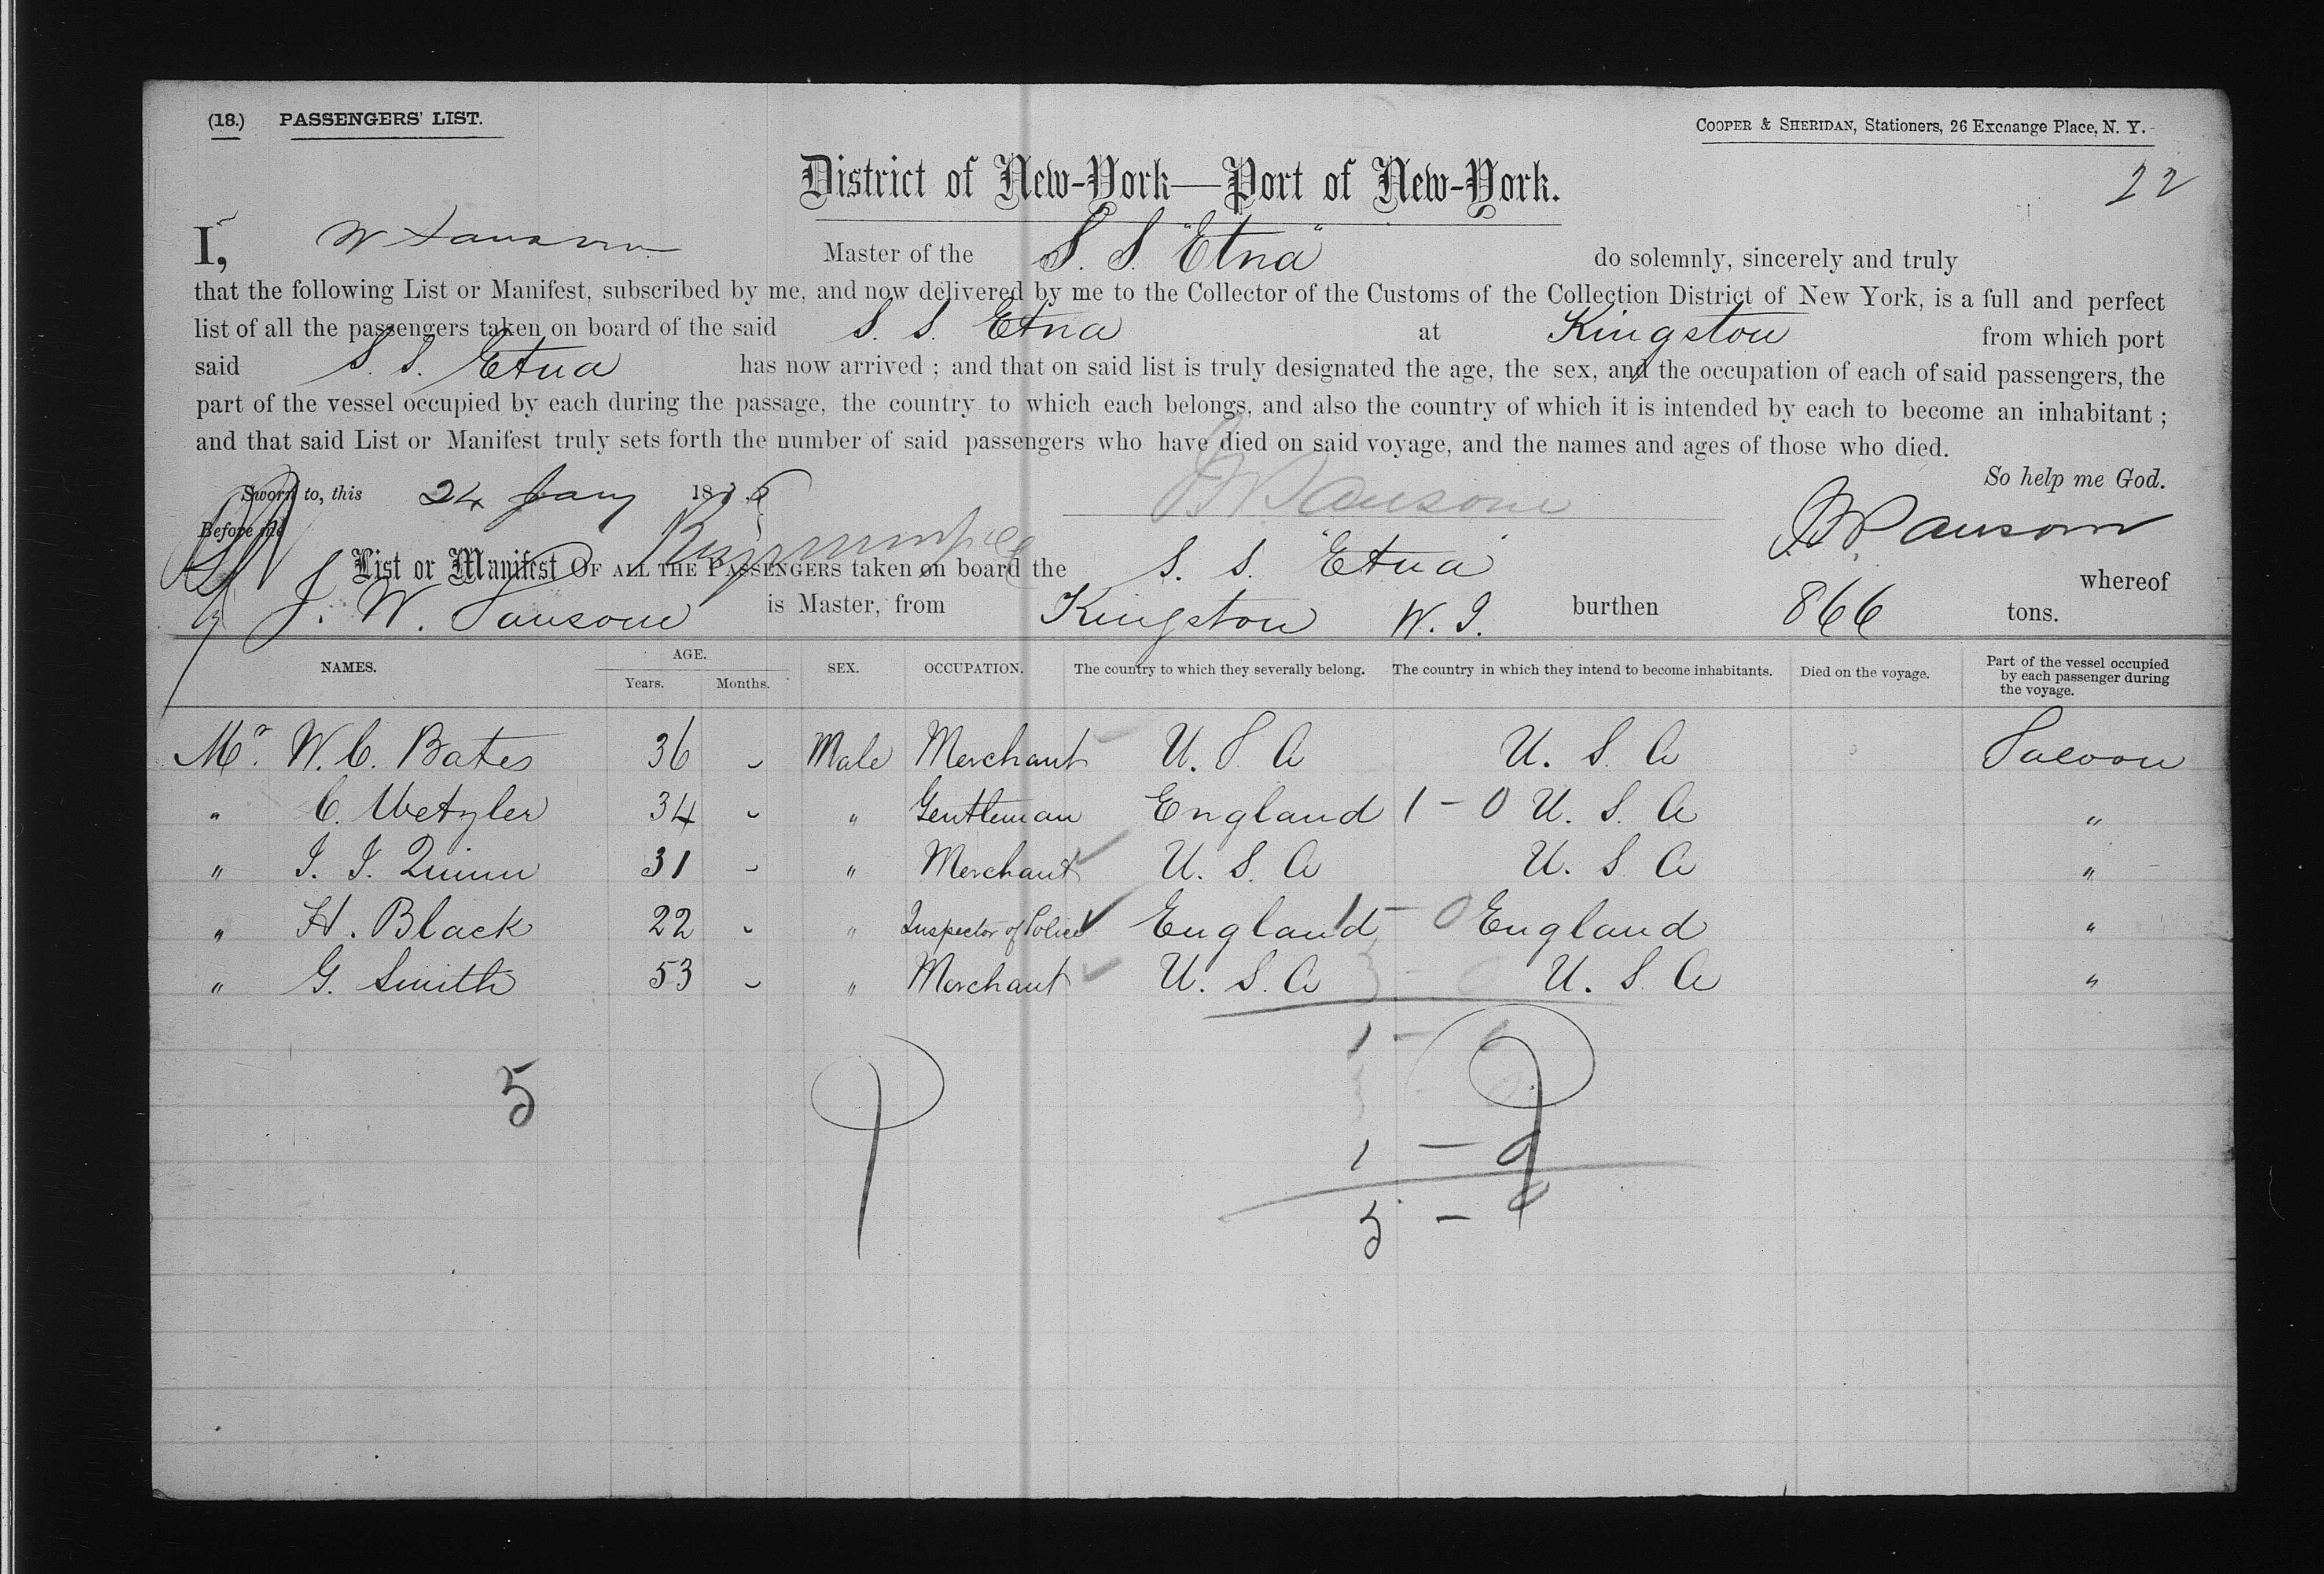 (18.) PASSENGERS' LIST.
COOPER & SHERIDAN, Stationers, 26 Exchange Place, N. Y.
22
District of New-York—Port of New-York.
I, W Sansom Master of the S. S. "Etna" do solemnly, sincerely and truly
that the following List or Manifest, subscribed by me, and now delivered by me to the Collector of the Customs of the Collection District of New York, is a full and perfect
list of all the passengers taken on board of the said S. S. Etna at Kingston from which port
said S. S. Etna has now arrived ; and that on said list is truly designated the age, the sex, and the occupation of each of said passengers, the
part of the vessel occupied by each during the passage, the country to which each belongs, and also the country of which it is intended by each to become an inhabitant ;
and that said List or Manifest truly sets forth the number of said passengers who have died on said voyage, and the names and ages of those who died.
So help me God.
Sworn to, this 24 Jany 18
Before me
List or Manifest OF ALL THE PASSENGERS taken on board the S. S. "Etna" whereof
J. W. Sansom is Master, from Kingston W. I. burthen 866 tons.
NAMES. AGE. Years. Months. SEX. OCCUPATION. The country to which they severally belong. The country in which they intend to become inhabitants. Died on the voyage. Part of the vessel occupied by each passenger during the voyage.
Mr. W. C. Bates 36 - Male Merchant U. S. A U. S. A Saloon
" C. Wetzler 34 - " Gentleman England 1 - 0 U. S. A "
" I. I. Quinn 31 - " Merchant U. S. A U. S. A "
" H. Black 22 - " Inspector of Police England 1 - 0 England "
" G. Smith 53 - " Merchant U. S. A 3 - 0 U. S. A "
1 -
5
1 - 0
5 - 0